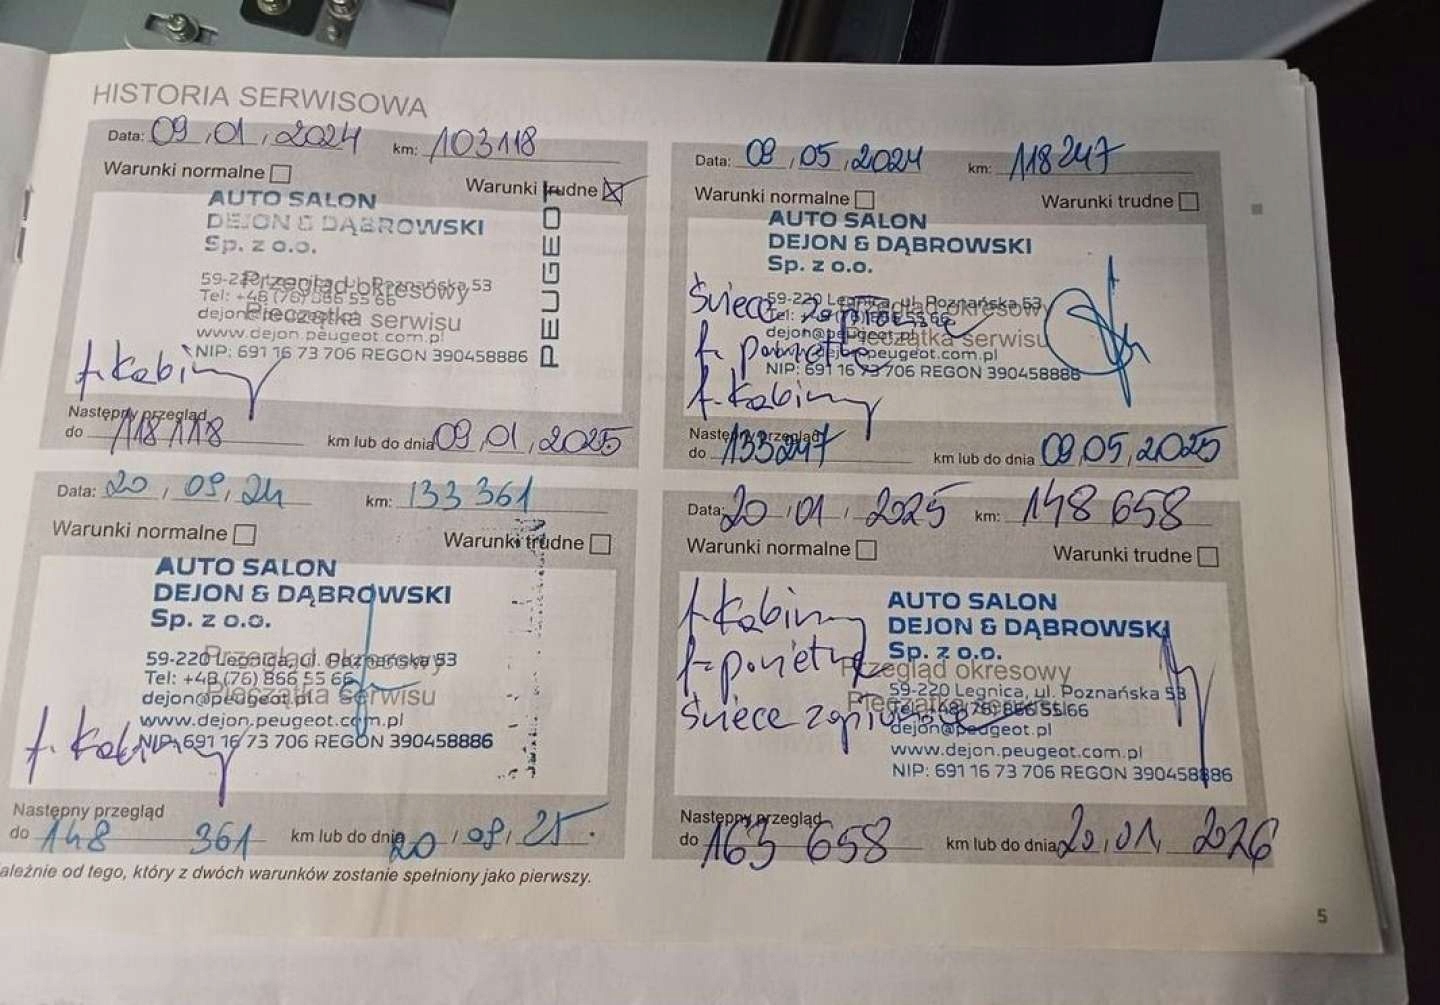 HISTORIA SERWISOWA
Data: 09.01.2024 km: 103118
Warunki normalne
Warunki trudne
AUTO SALON
DEJON & DĄBROWSKI
Sp. z o.o.
Przegląd okresowy
59-220 Legnica, ul. Poznańska 53
Tel: +48 (76) 866 55 66
Pieczątka serwisu
www.dejon.peugeot.com.pl
NIP: 691 16 73 706 REGON 390458886
PEUGEOT
f. Kabiny
Następny przegląd
do 118118 km lub do dnia 09.01.2025
Data: 09.05.2024 km: 118247
Warunki normalne
Warunki trudne
AUTO SALON
DEJON & DĄBROWSKI
Sp. z o.o.
Świece zapłonowe
59-220 Legnica, ul. Poznańska 53
Przegląd okresowy
Tel: +48 (76) 866 55 66
dejon@peugeot.pl
Pieczątka serwisu
f. powietrza
www.dejon.peugeot.com.pl
NIP: 691 16 73 706 REGON 390458886
f. Kabiny
Następny przegląd
do 133247 km lub do dnia 09.05.2025
Data: 20/09/24 km: 133 361
Warunki normalne
Warunki trudne
AUTO SALON
DEJON & DĄBROWSKI
Sp. z o.o.
Przegląd okresowy
59-220 Legnica, ul. Poznańska 53
Tel: +48 (76) 866 55 66
Pieczątka serwisu
dejon@peugeot.pl
www.dejon.peugeot.com.pl
f. Kabiny
NIP: 691 16 73 706 REGON 390458886
Następny przegląd
do 148 361 km lub do dnia 20/09/25.
Data: 20.01.2025 km: 148 658
Warunki normalne
Warunki trudne
f. Kabiny
AUTO SALON
DEJON & DĄBROWSKI
Sp. z o.o.
f. powietrza
Przegląd okresowy
59-220 Legnica, ul. Poznańska 53
Pieczątka serwisu
Tel: +48 (76) 866 55 66
Świece zapłonowe
dejon@peugeot.pl
www.dejon.peugeot.com.pl
NIP: 691 16 73 706 REGON 390458886
Następny przegląd
do 163 658 km lub do dnia 20.01.2026
ależnie od tego, który z dwóch warunków zostanie spełniony jako pierwszy.
5